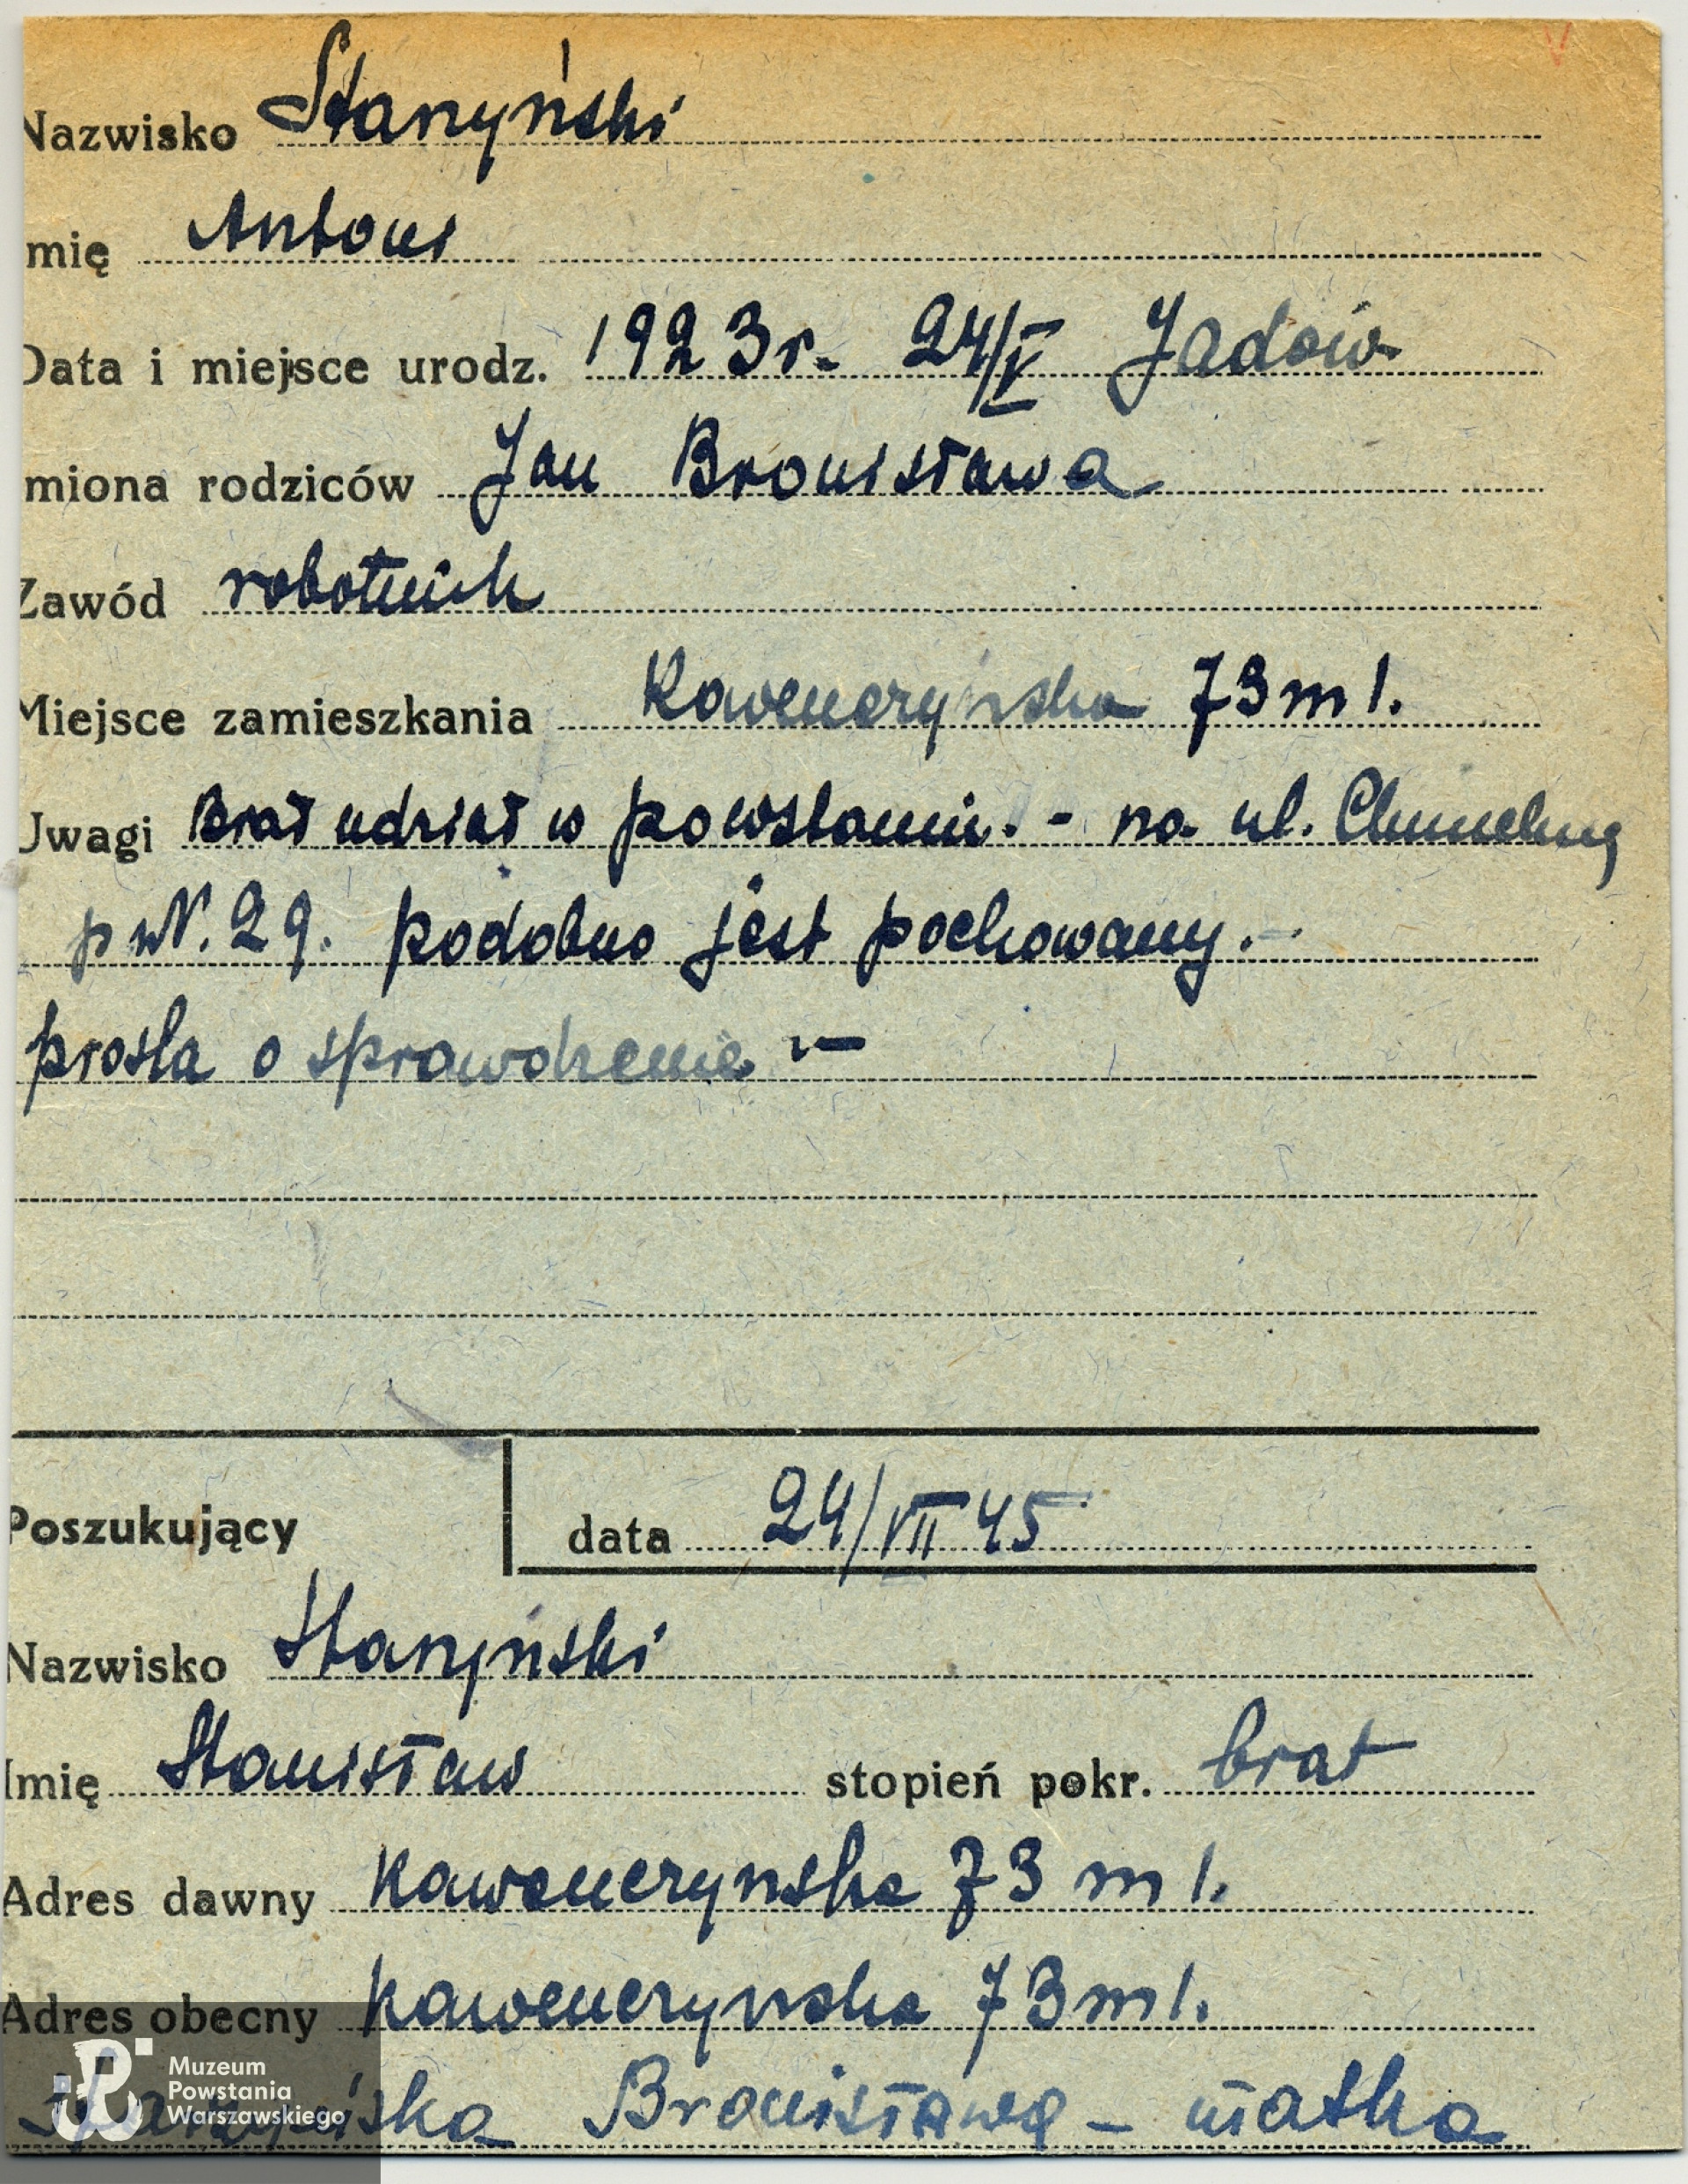 Nazwisko Staryński
mię Antoni
Data i miejsce urodz. 1923 r. 24/V Jadów
miona rodziców Jan Bronisława
Zawód robotnik
Miejsce zamieszkania Kawenczyńska 73 m 1.
Uwagi Brał udział w powstaniu. - na ul. Chmielnej
p Nr. 29. podobno jest pochowany. -
prosba o sprawdzenie. -
Poszukujący data 24/VII 45
Nazwisko Staryński
Imię Stanisław stopień pokr. brat
Adres dawny Kawenczynska 73 m 1.
Adres obecny Kawenczynska 73 m 1.
Bronisława - matka
Muzeum
Powstania
Warszawskiego